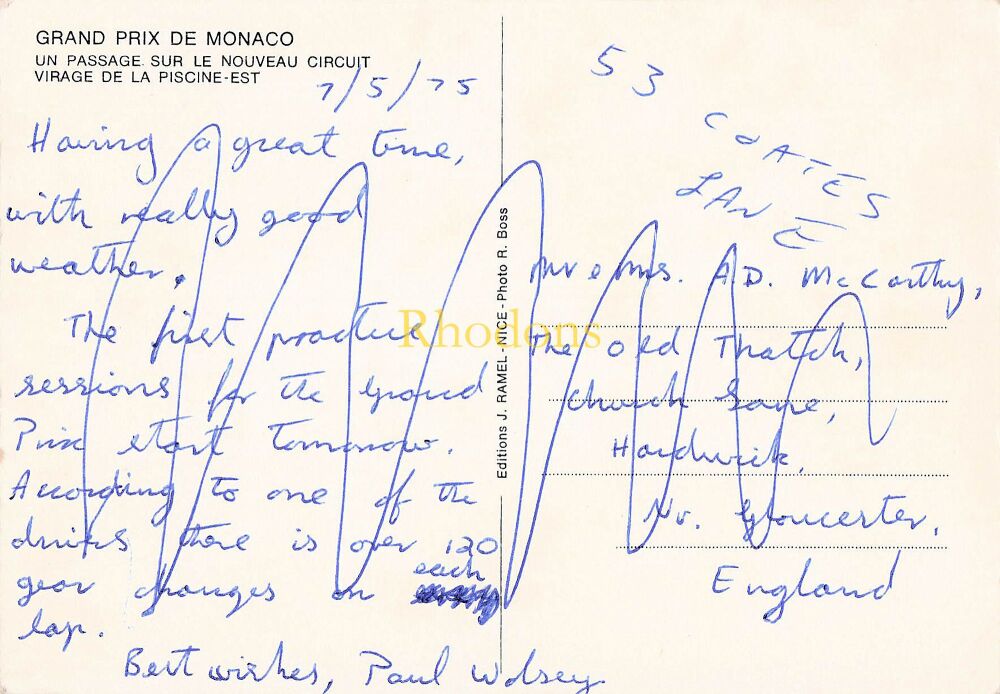 GRAND PRIX DE MONACO
UN PASSAGE SUR LE NOUVEAU CIRCUIT
VIRAGE DE LA PISCINE-EST
7/5/75
Having a great time,
with really good
weather.
The first practice
sessions for the Grand
Prix start tomorrow.
According to one of the
drivers there is over 120
gear changes on each
lap.
Best wishes, Paul Wolsey.
Editions J. RAMEL - NICE - Photo R. Boss
Rhodons
53
COATES
LANE
Mr & Mrs. A.D. McCarthy,
The Old Thatch,
Church Lane,
Hardwick,
Nr. Gloucester,
England